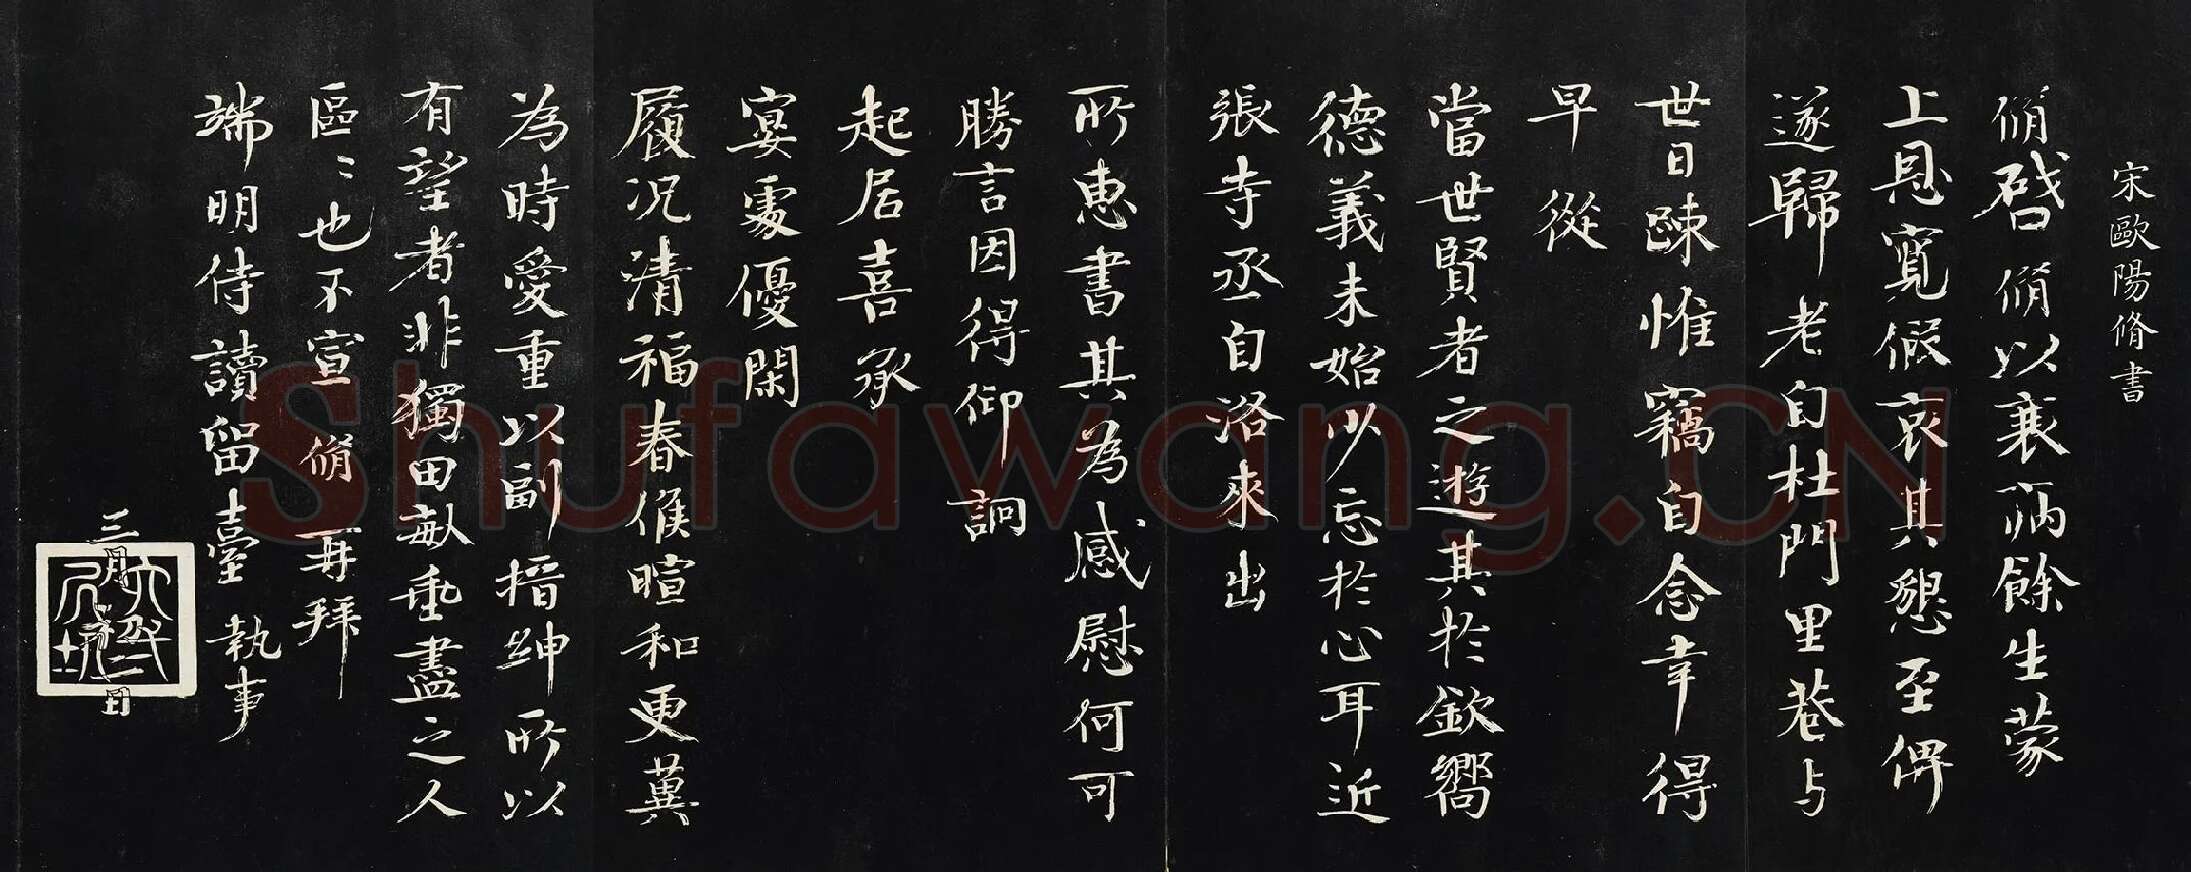 宋歐陽脩書
脩啓脩以衰病餘生蒙
上恩寬假哀其懇至俾
遂歸老自杜門里巷与
世日踈惟竊自念幸得
早從
當世賢者之遊其於欽嚮
德義未始少忘於心耳近
張寺丞自洛來出
所惠書其為感慰何可
勝言因得仰詗
起居喜承
宴處優閑
履况清福春候暄和更冀
為時愛重以副搢紳所以
有望者非獨田畝垂盡之人
區々也不宣脩再拜
端明侍讀留臺執事
三月日
Shufawang.CN